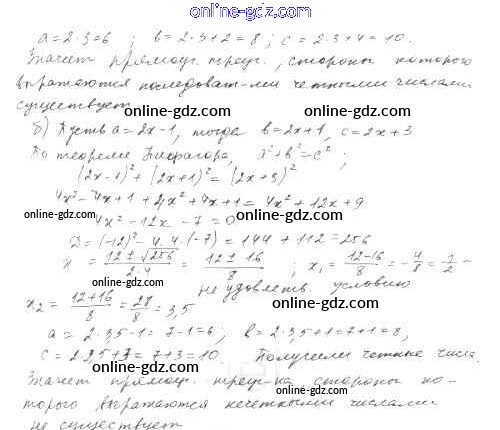 online-gdz.com
a = 2·3 = 6 ; в = 2·3+2 = 8 ; с = 2·3+4 = 10.
Значит прямоуг. треуг., стороны которого
выражаются последоват-ми четными числами
существует
online-gdz.com online-gdz.com
б) Пусть а = 2x-1, тогда в = 2x+1, с = 2x+3
По теореме Пифагора, x²+b²=c² ;
(2x-1)² + (2x+1)² = (2x+3)²
4x² - 4x+1 + 4x²+4x+1 = 4x²+12x+9
online-gdz.com online-gdz.com
4x² - 12x - 7 = 0
Д = (-12)² - 4·4·(-7) = 144 + 112 = 256
x = 12 ± √256 / 2·4 = 12 ± 16 / 8 ; x₁ = 12-16 / 8 = -4/8 = -1/2 -
online-gdz.com online-gdz.com
не удовлетв. условию
x₂ = 12+16 / 8 = 28/8 = 3,5
a = 2·3,5-1 = 7-1 = 6 ; в = 2·3,5+1 = 7+1 = 8,
online-gdz.com
с = 2·3,5+3 = 7+3 = 10. Получели четные числа.
online-gdz.com
Значит прямоуг. треуг-ка стороны ко-
торого выражаются нечетными числами
online-gdz.com
не существует